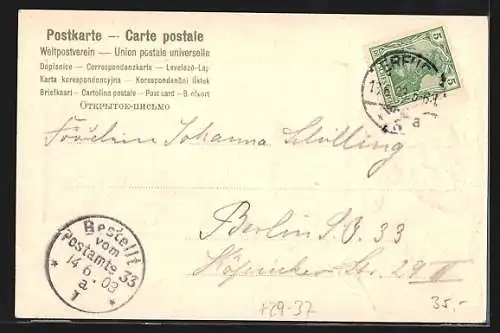 Postkarte — Carte postale
Weltpostverein — Union postale universelle
Dopisnice — Correspondenzkarte — Levelező-Lap
Karta korespondencyjna — Korespondenční lístek
Briefkaart — Cartolina postale — Post card — Brefkort
Открытое письмо
5 5
a
Fräulein Johanna Schilling
Berlin S.O. 33
Str. 29 II
Bestellt
vom
Postamte 33
14.6.03
a
1
+29-37
35,-